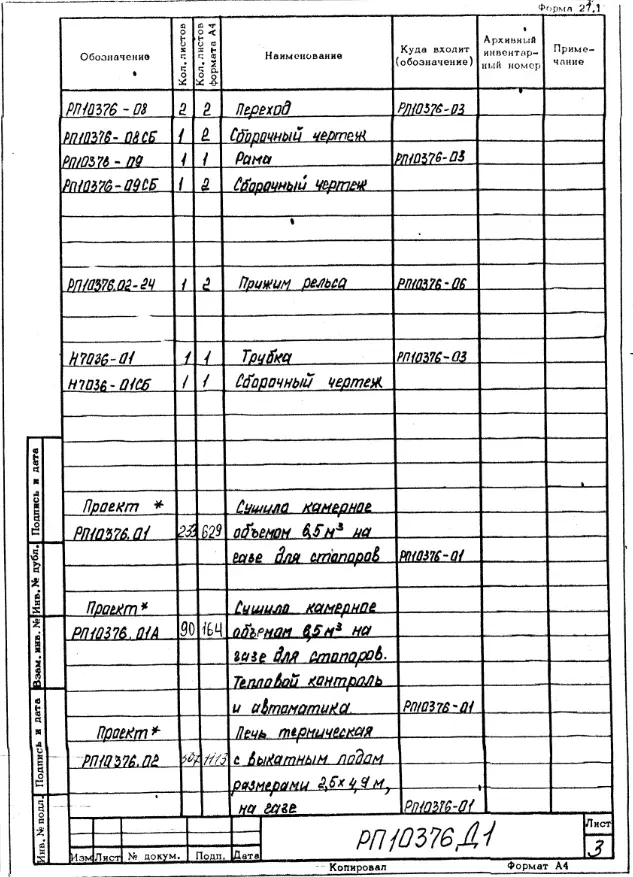 Форма 2г,1
Обозначение Кол. листов Кол. листов формата А4 Наименование Куда входит (обозначение) Архивный инвентарный номер Примечание
РП10376-08 2 2 Переход РП10376-03
РП10376-08СБ 1 2 Сборочный чертеж
РП10376-09 1 1 Рама РП10376-03
РП10376-09СБ 1 2 Сборочный чертеж
РП10376.02-24 1 2 Прижим рельса РП10376-06
Н7036-01 1 1 Трубка РП10376-03
Н7036-01СБ 1 1 Сборочный чертеж
Проект * Сушила камерное
РП10376.01 233 629 объемом 6,5 м³ на
газе для стопоров РП10376-01
Проект * Сушила камерное
РП10376.01А 90 164 объемом 6,5 м³ на
газе для стопоров.
Тепловой контроль
и автоматика РП10376-01
Проект * Печь термическая
РП10376.02 1113 с выкатным подом
размерами 2,5×4,9 м,
на газе РП10376-01
Подпись и дата
Инв. № дубл.
Взам. инв. №
Подпись и дата
Инв. № подл.
Изм Лист № докум. Подп. Дата
РП10376Д1
Лист
3
Копировал Формат А4